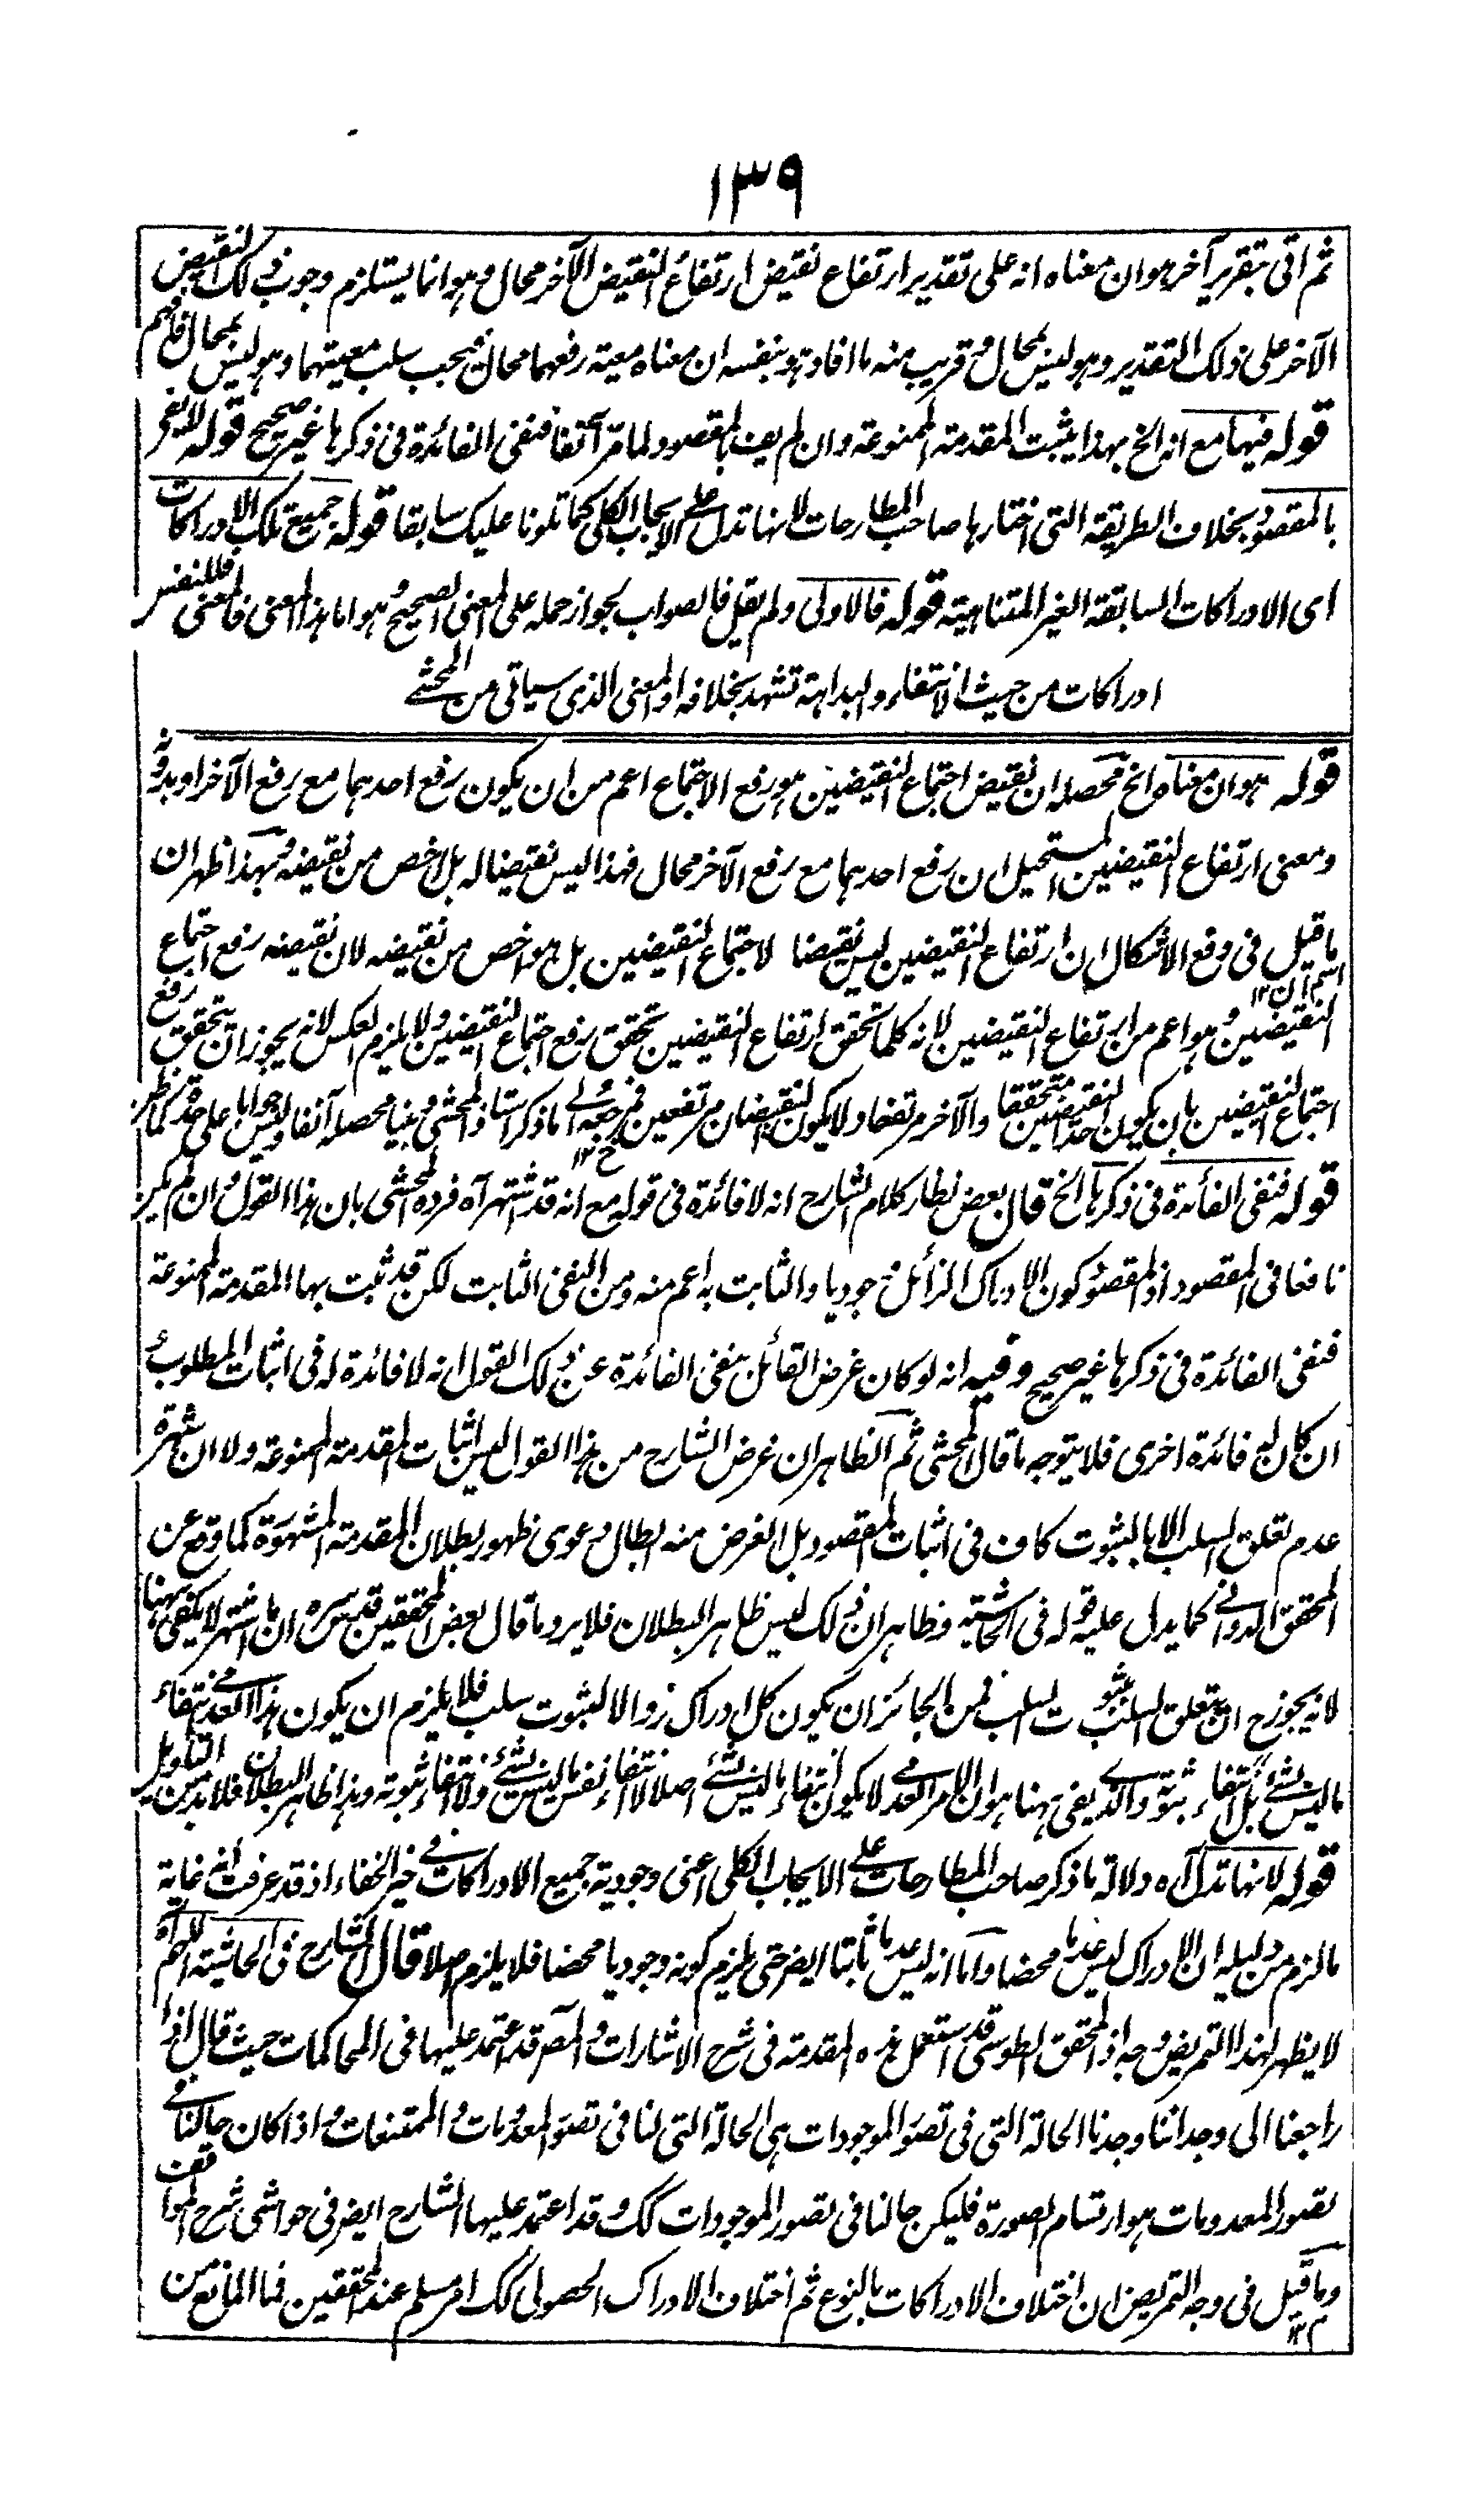 ١٣٩
ثم اتى بتقرير آخر هو ان معناه انه على تقدير ارتفاع نقيض ارتفاع النقيض الآخر محال وهو انما يستلزم وجوب ذلك النقيض
الآخر على ذلك التقدير وهو ليس بمحال وقريب منه ما افاده هو بنفسه ان معناه معية رفعهما محال فيجب سلب معيتهما وهو ليس بمحال فافهم
قوله فيها مع انه الخ بهذا يثبت المقدمة الممنوعة وان لم يف بالمقصود لما مر آنفا فنفى الفائدة فى ذكرها غير صحيح قوله لا يفى
بالمقصود بخلاف الطريقة التى اختارها صاحب المطارحات لانها تدل على الايجاب الكلى كما تلونا عليك سابقا قوله جميع تلك الادراكات
اى الادراكات السابقة الغير المتناهية قوله فالاولى ولم يقل فالصواب لجواز حمله على المعنى الصحيح وهو اما هذا المعنى فالمعنى فللنفس
ادراكات من حيث الانتفاء والبداهة تشهد بخلافه او المعنى الذى سياتى من المحشى
قوله هو ان معناه الخ محصله ان نقيض اجتماع النقيضين هو رفع الاجتماع اعم من ان يكون رفع احدهما مع رفع الآخر او بدونه
ومعنى ارتفاع النقيضين المستحيل ان رفع احدهما مع رفع الآخر محال فهذا ليس نقيضا له بل اخص من نقيضه وبهذا ظهر ان
ما قيل فى دفع الاشكال ان ارتفاع النقيضين ليس نقيضا لاجتماع النقيضين بل هو اخص من نقيضه لان نقيضه رفع اجتماع
النقيضين وهو اعم من ارتفاع النقيضين لانه كلما تحقق ارتفاع النقيضين تحقق رفع اجتماع النقيضين ولا يلزم العكس لانه يجوز ان يتحقق رفع
اجتماع النقيضين بان يكون احد النقيضين متحققا والآخر مرتفعا ولا يكون النقيضان مرتفعين فمرجعه الى ما ذكر استاذ المحشى وبينا محصله آنفا وليس جوابا على حدة كما ظن
قوله فنفى الفائدة فى ذكرها الخ قال بعض نظار كلام الشارح انه لا فائدة فى قوله مع انه قد اشتهر آه فرده المحشى بان هذا القول وان لم يكن
نافعا فى المقصود اذ المقصود كون الادراك الزائل وجوديا والثابت به اعم منه ومن النفى الثابت لكن قد ثبت بها المقدمة الممنوعة
فنفى الفائدة فى ذكرها غير صحيح وفيه انه لو كان غرض القائل بنفى الفائدة عن ذلك القول انه لا فائدة له فى اثبات المطلوب و
ان كان له فائدة اخرى فلا يتوجه ما قال المحشى ثم الظاهر ان غرض الشارح من هذا القول ليس اثبات المقدمة الممنوعة ولا ان شهرة
عدم تعلق السلب الا بالثبوت كاف فى اثبات المقصود بل الغرض منه ابطال دعوى ظهور بطلان المقدمة المشهورة كما وقع عن
المحقق الدوانى كما يدل عليه قوله فى الحاشية وظاهر ان ذلك ليس ظاهر البطلان فلا يرد ما قال بعض المحققين قدس سره ان ما اشتهر لا يكفى ههنا
لانه يجوز ح ان يتعلق السلب بثبوت السلب فمن الجائز ان يكون كل ادراك زوالا لثبوت سلب فلا يلزم ان يكون هذا العدمى انتفاء
ما ليس بشئ بل انتفاء ثبوته والذى يفى ههنا هو ان الامر العدمى لا يكون انتفاء ما ليس بشئ اصلا لا انتفاء نفس ما ليس بشئ ولا انتفاء ثبوته وهذا ظاهر البطلان فلا بد من التاويل
قوله لانها تدل آه دلالة ما ذكر صاحب المطارحات على الايجاب الكلى اعنى وجودية جميع الادراكات فى خير الخفاء اذ قد عرفت ان غاية
ما لزم من دليله ان الادراك ليس عدما محضا واما انه ليس عدما ثابتا ايضر حتى يلزم كونه وجوديا محضا فلا يلزم اصلا قال الشارح فى الحاشية
لا يظهر لهذا التمريض وجه اذ المحقق الطوسى قد استعمل هذه المقدمة فى شرح الاشارات والمصر قد اعتمد عليها فى المحاكمات حيث قال اذا
راجعنا الى وجداننا وجدنا الحالة التى فى تصور الموجودات هى الحالة التى لنا فى تصور المعدومات والممتنعات واذا كان حالنا فى
تصور المعدومات هو ارتسام الصورة فليكن حالنا فى تصور الموجودات كك وقد اعتمد عليها الشارح ايضر فى حواشى شرح المواقف
وما قيل فى وجه التمريض ان اختلاف الادراكات بالنوع ثم اختلاف الادراك الحصولى كك امر مسلم عند المحققين فما المانع من